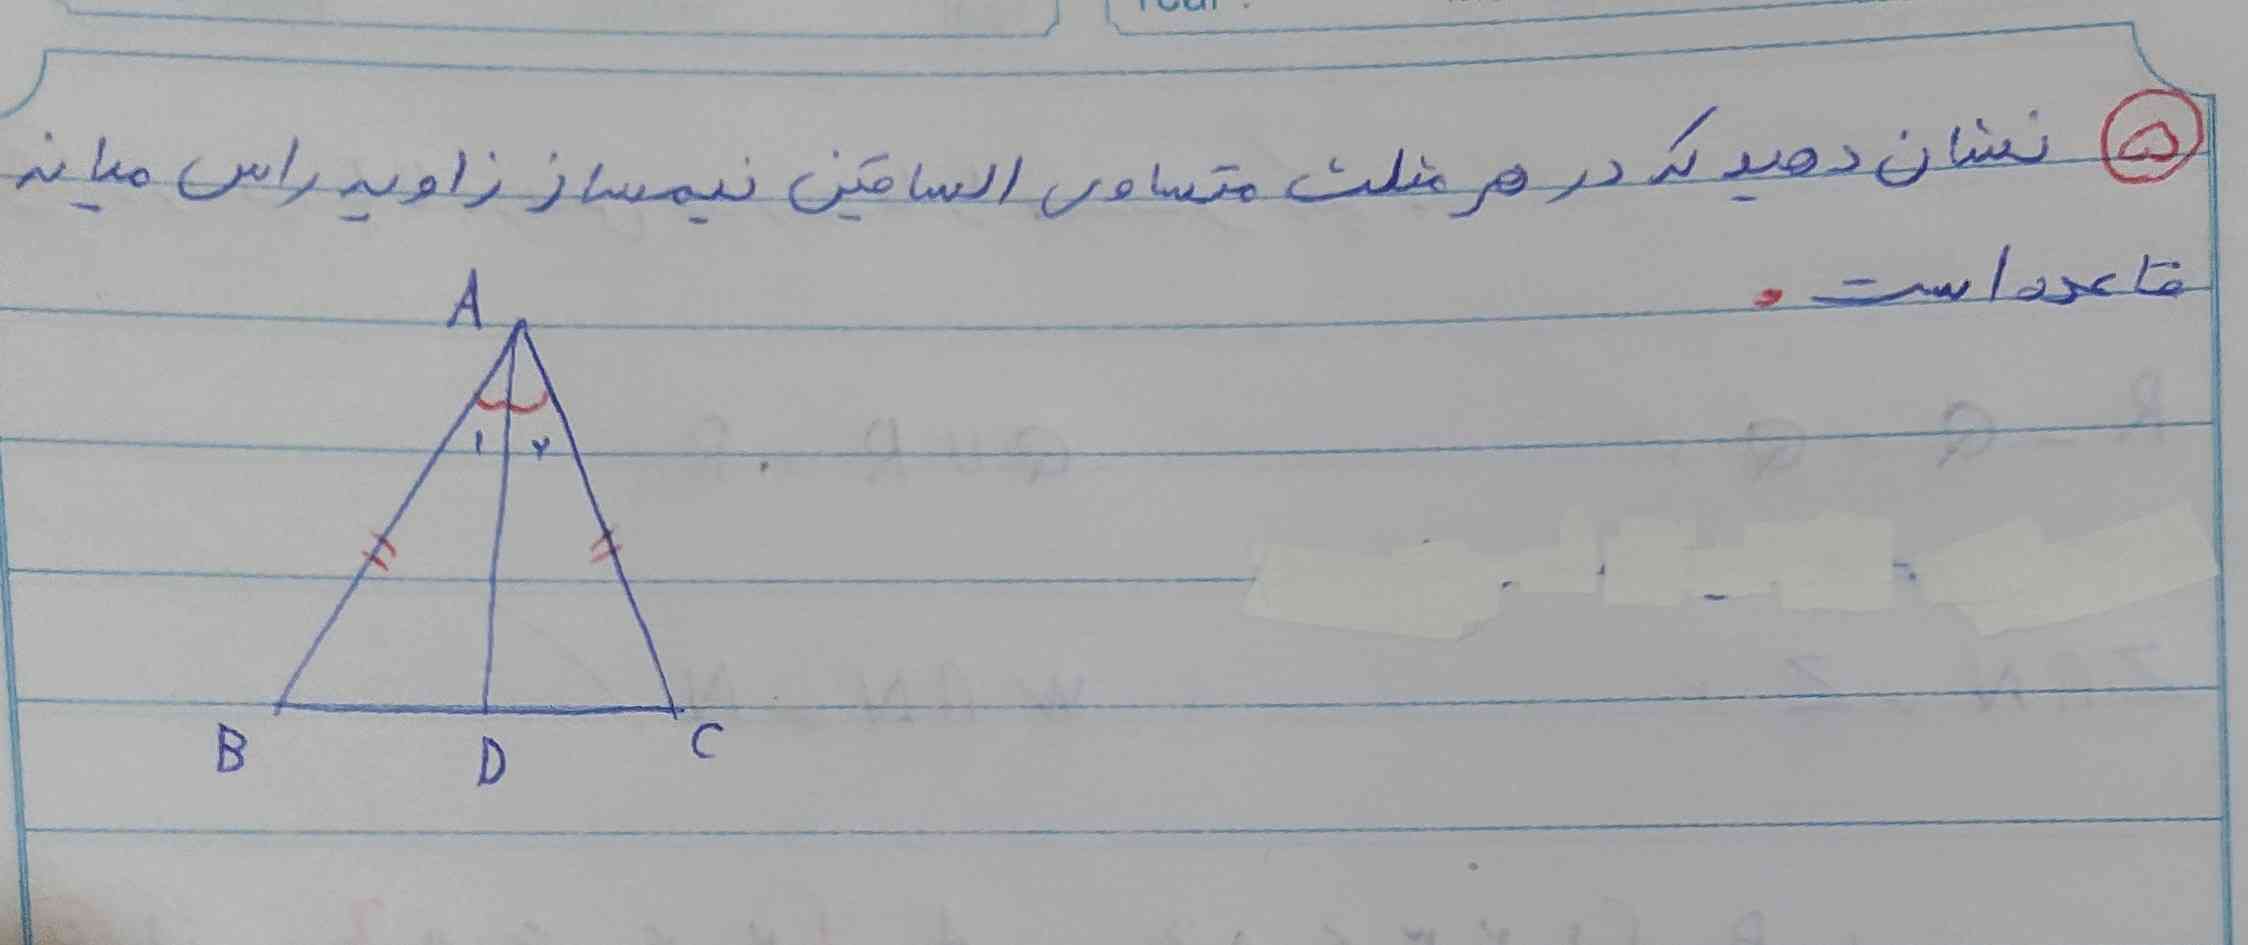 ۵ نشان دهید که در هر مثلث متساوی الساقین نیمساز زاویه راس میانه
قاعده است.
A
۱ ۲
B D C